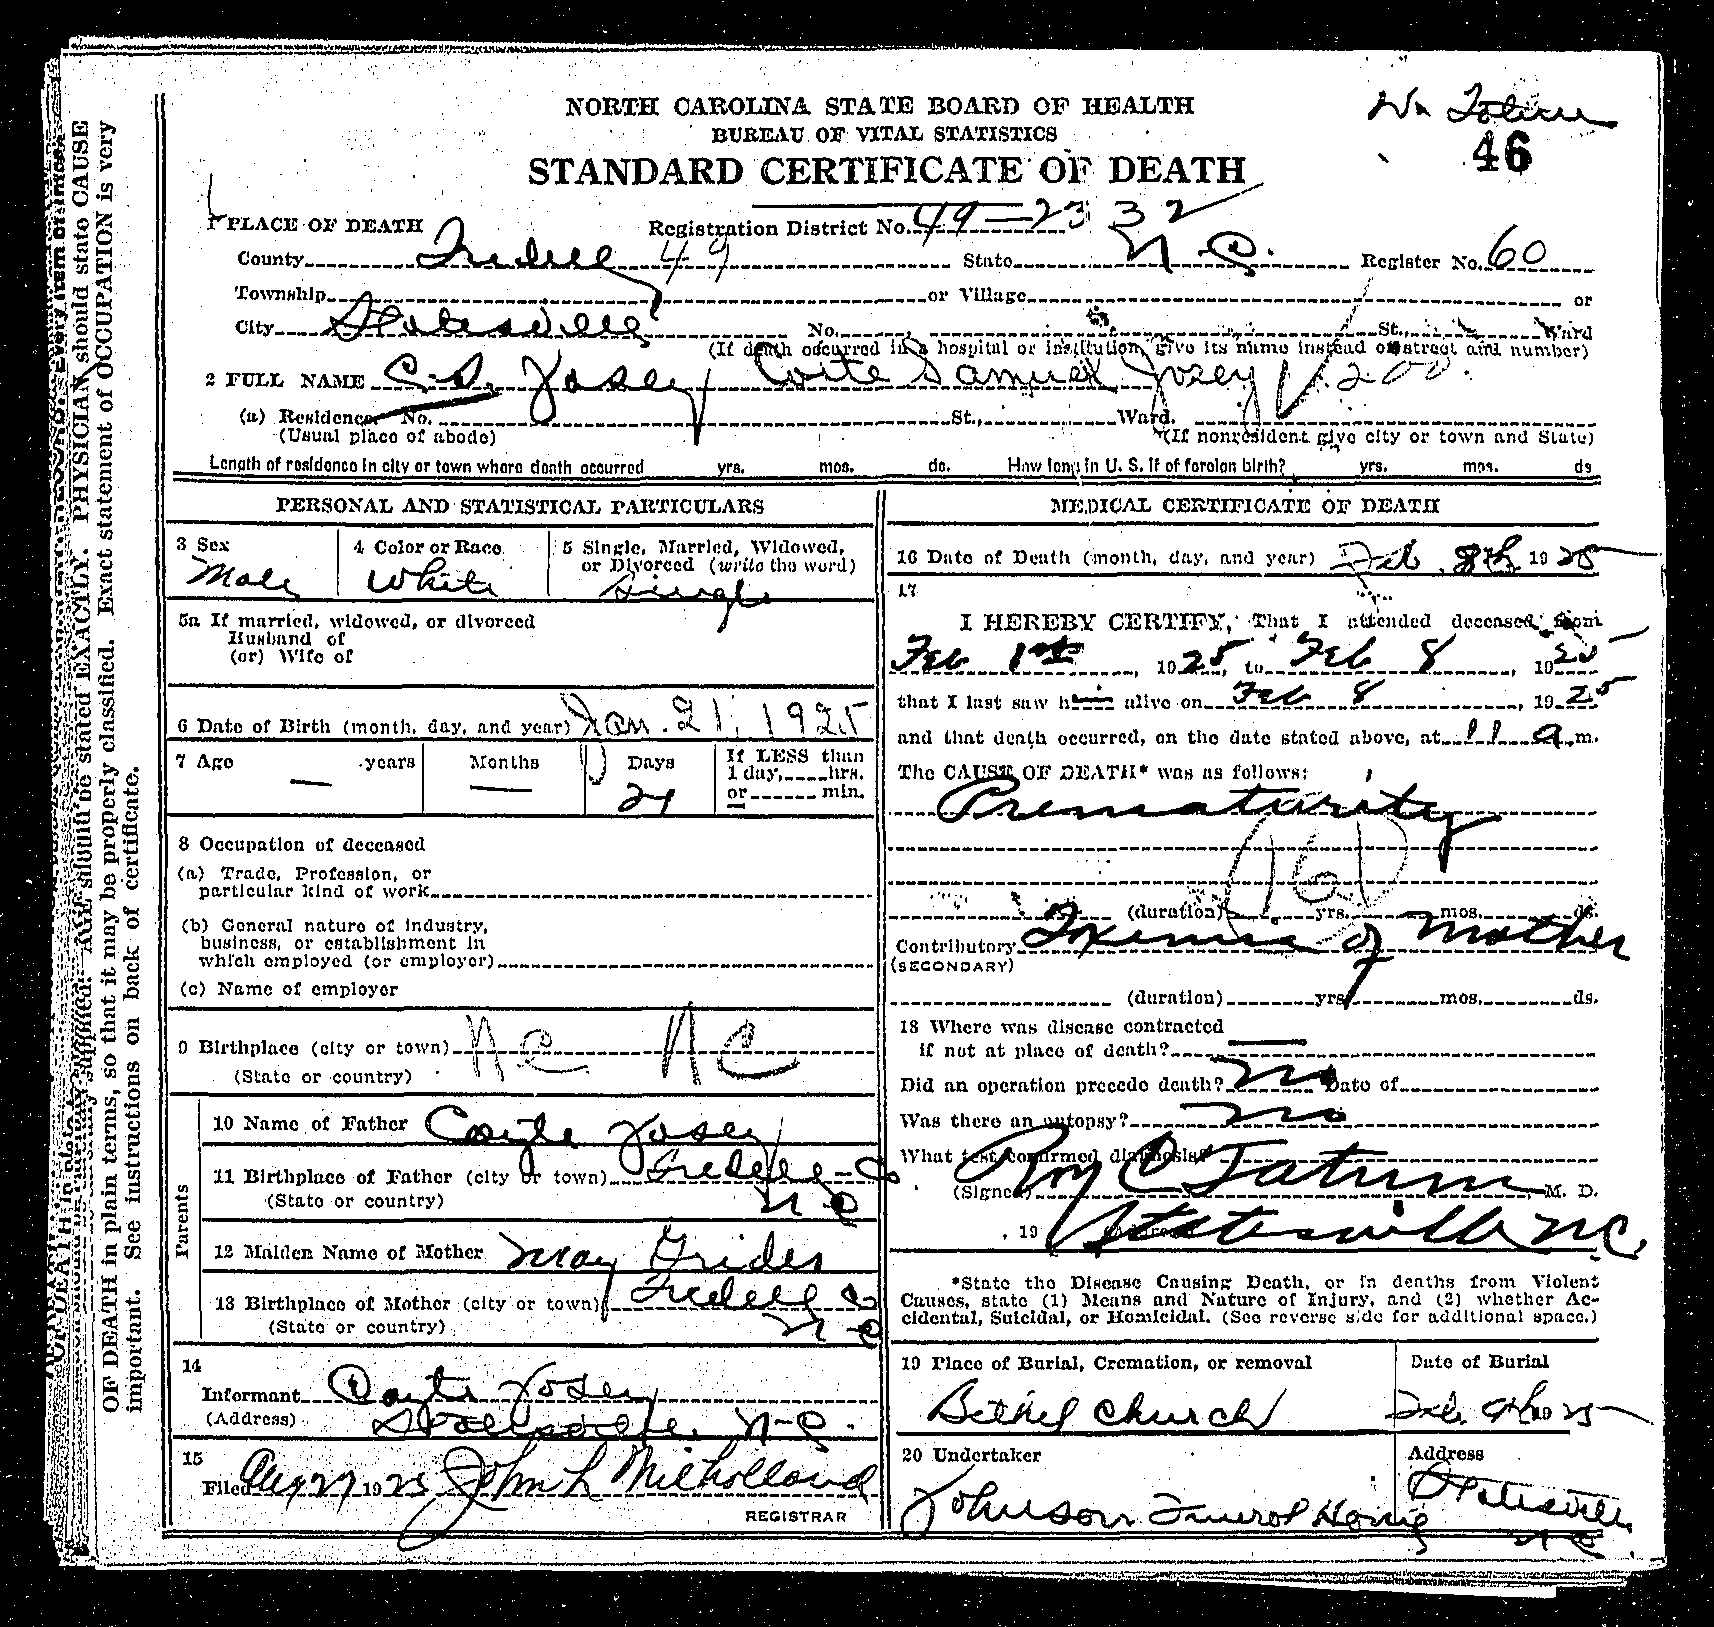 NORTH CAROLINA STATE BOARD OF HEALTH
BUREAU OF VITAL STATISTICS
STANDARD CERTIFICATE OF DEATH
46
1 PLACE OF DEATH
Registration District No. 49-2332
County Iredell 49 State N.C. Register No. 60
Township or Village or
City Statesville No. St., Ward
(If death occurred in a hospital or institution, give its name instead of street and number)
2 FULL NAME C.S. Josey Coite Samuel Josey
(a) Residence No. St., Ward.
(Usual place of abode) (If nonresident give city or town and State)
Length of residence in city or town where death occurred yrs. mos. ds. How long in U. S. if of foreign birth? yrs. mos. ds
PERSONAL AND STATISTICAL PARTICULARS
3 Sex Male
4 Color or Race White
5 Single, Married, Widowed,
or Divorced (write the word)
Single
5a If married, widowed, or divorced
Husband of
(or) Wife of
6 Date of Birth (month, day, and year) Jan. 21, 1925
7 Age — years Months — Days 21
If LESS than
1 day, hrs.
or min.
8 Occupation of deceased
(a) Trade, Profession, or
particular kind of work
(b) General nature of industry,
business, or establishment in
which employed (or employer)
(c) Name of employer
9 Birthplace (city or town) NC NC
(State or country)
Parents
10 Name of Father Coyte Josey
11 Birthplace of Father (city or town) Iredell-Co
(State or country) N C
12 Maiden Name of Mother May Grides
13 Birthplace of Mother (city or town) Iredell Co
(State or country) N C
14
Informant Coyte Josey
(Address) Statesville, N-C.
15
Filed Aug 27 1925 John L Milholland
REGISTRAR
MEDICAL CERTIFICATE OF DEATH
16 Date of Death (month, day, and year) Feb. 8th 1925
17
I HEREBY CERTIFY, That I attended deceased from
Feb 1st, 1925, to Feb 8, 1925
that I last saw him alive on Feb 8, 1925
and that death occurred, on the date stated above, at 11 a m.
The CAUSE OF DEATH* was as follows:
Prematurity
161
(duration) yrs. mos. ds.
Contributory Toxemia of Mother
(SECONDARY)
(duration) yrs. mos. ds.
18 Where was disease contracted
if not at place of death? —
Did an operation precede death? No Date of
Was there an autopsy? No
What test confirmed diagnosis?
(Signed) Roy C Tatum M. D.
, 19 (Address) Statesville N.C.
*State the Disease Causing Death, or in deaths from Violent
Causes, state (1) Means and Nature of Injury, and (2) whether Ac-
cidental, Suicidal, or Homicidal. (See reverse side for additional space.)
19 Place of Burial, Cremation, or removal
Bethel Church
Date of Burial
Feb. 9th 1925
20 Undertaker
Johnson Funeral Home
Address
Statesville
N C.
OF DEATH in plain terms, so that it may be properly classified. Exact statement of OCCUPATION is very
important. See instructions on back of certificate.
AGE should be stated EXACTLY. PHYSICIAN should state CAUSE